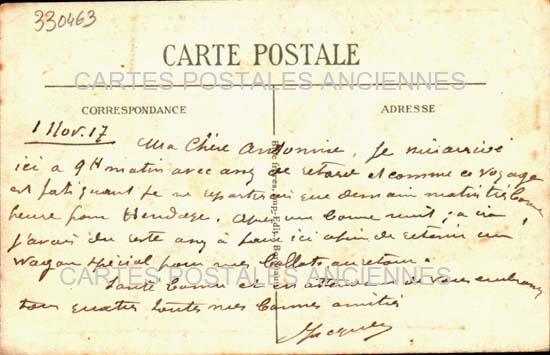 330463
CARTE POSTALE
CARTES POSTALES ANCIENNES
CORRESPONDANCE
ADRESSE
1 Nov. 17
Ma Chère Antonine, Je suis arrivé
ici à 9H matin avec de retard et comme ce voyage
est fatiguant je ne repartirai que demain matin
heure pour Hendaye. Après une bonne nuit,
j'aurai du reste à faire ici afin de retenir un
Wagon spécial pour mes au retour.
CARTES POSTALES ANCIENNES
Santé bonne et vous
tous quatre toutes mes bonnes amitiés
Jacques